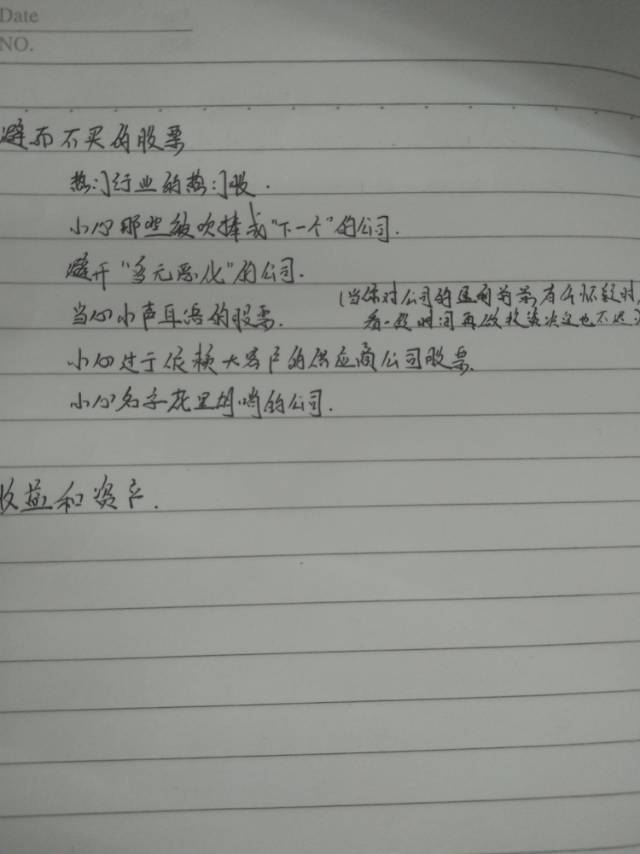 Date
NO.
避而不买的股票
热门行业的热门股.
小心那些被吹捧成"下一个"的公司.
避开"多元恶化"的公司.
当心小声耳语的股票. (当你对公司的盈利前景有所怀疑时,
看一段时间再做投资决定也不迟)
小心过于依赖大客户的供应商公司股票.
小心名字花里胡哨的公司.
收益和资产.